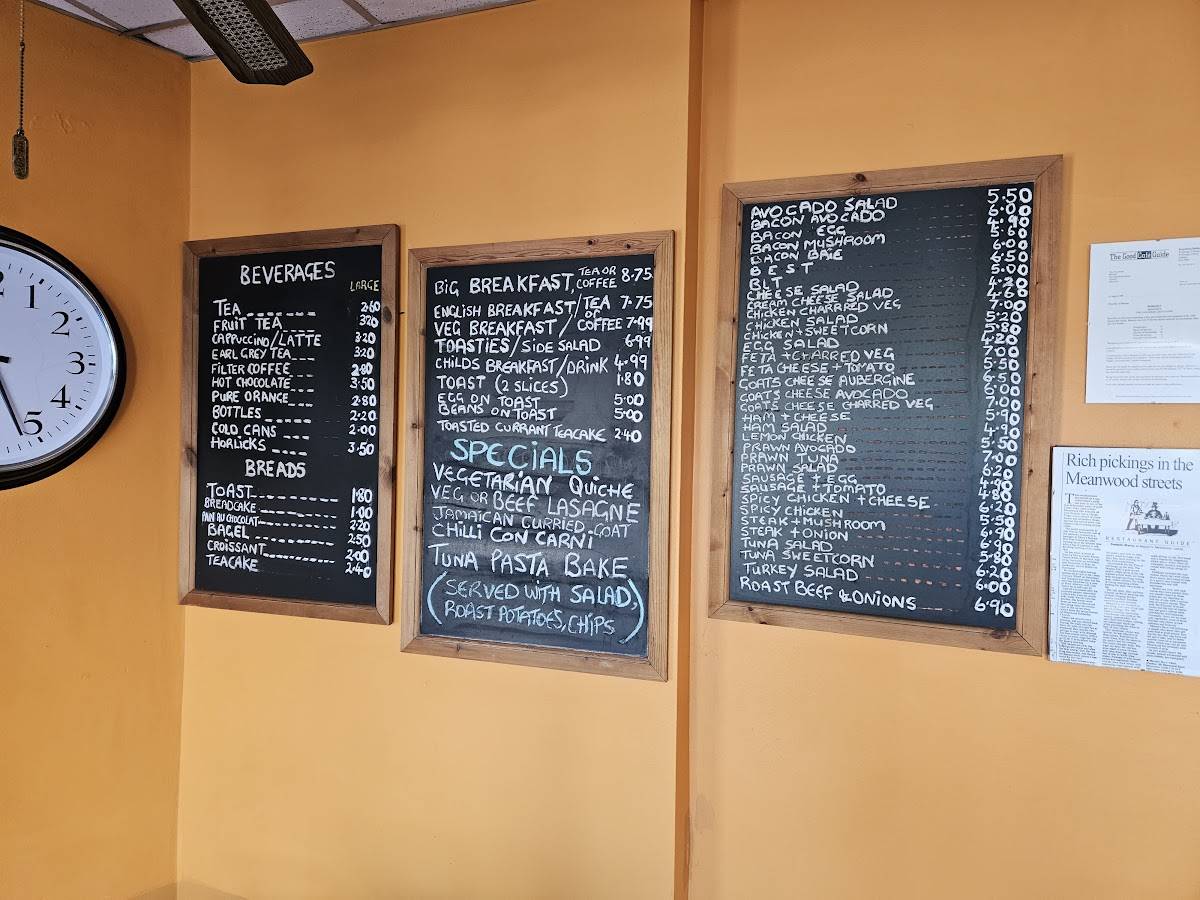 BEVERAGES
LARGE
TEA 2.60
FRUIT TEA 3.20
CAPPUCCINO/LATTE 3.20
EARL GREY TEA 3.20
FILTER COFFEE 2.80
HOT CHOCOLATE 3.50
PURE ORANGE 2.80
BOTTLES 2.20
COLD CANS 2.00
HORLICKS 3.50
BREADS
TOAST 1.80
BREADCAKE 1.00
PAIN AU CHOCOLAT 2.20
BAGEL 2.50
CROISSANT 2.00
TEACAKE 2.40
BIG BREAKFAST, TEA OR COFFEE 8.75
ENGLISH BREAKFAST/TEA 7.75
OR
VEG BREAKFAST / COFFEE 7.99
TOASTIES/SIDE SALAD 6.99
CHILDS BREAKFAST/DRINK 4.99
TOAST (2 SLICES) 1.80
EGG ON TOAST 5.00
BEANS ON TOAST 5.00
TOASTED CURRANT TEACAKE 2.40
SPECIALS
VEGETARIAN QUICHE
VEG OR BEEF LASAGNE
JAMAICAN CURRIED GOAT
CHILLI CON CARNI
TUNA PASTA BAKE
(SERVED WITH SALAD,
ROAST POTATOES, CHIPS)
AVOCADO SALAD 5.50
BACON AVOCADO 6.00
BACON EGG 4.90
BACON MUSHROOM 5.60
BACON BRIE 6.00
BEST 6.50
BLT 5.00
CHEESE SALAD 4.20
CREAM CHEESE SALAD 4.60
CHICKEN CHARRED VEG 7.00
CHICKEN SALAD 5.20
CHICKEN + SWEETCORN 5.80
EGG SALAD 4.20
FETA + CHARRED VEG 7.00
FETA CHEESE + TOMATO 5.50
GOATS CHEESE AUBERGINE 6.50
GOATS CHEESE AVOCADO 6.00
GOATS CHEESE CHARRED VEG 7.00
HAM + CHEESE 5.90
HAM SALAD 4.90
LEMON CHICKEN 5.50
PRAWN AVOCADO
PRAWN TUNA 7.00
PRAWN SALAD 6.20
SAUSAGE + EGG 4.90
SAUSAGE + TOMATO 4.80
SPICY CHICKEN + CHEESE 6.20
SPICY CHICKEN 5.50
STEAK + MUSHROOM 6.90
STEAK + ONION 6.90
TUNA SALAD 5.80
TUNA SWEETCORN 6.20
TURKEY SALAD 5.00
ROAST BEEF & ONIONS 6.90
The Good Cafe Guide
Rich pickings in the
Meanwood streets
RESTAURANT GUIDE
1
2
3
4
5